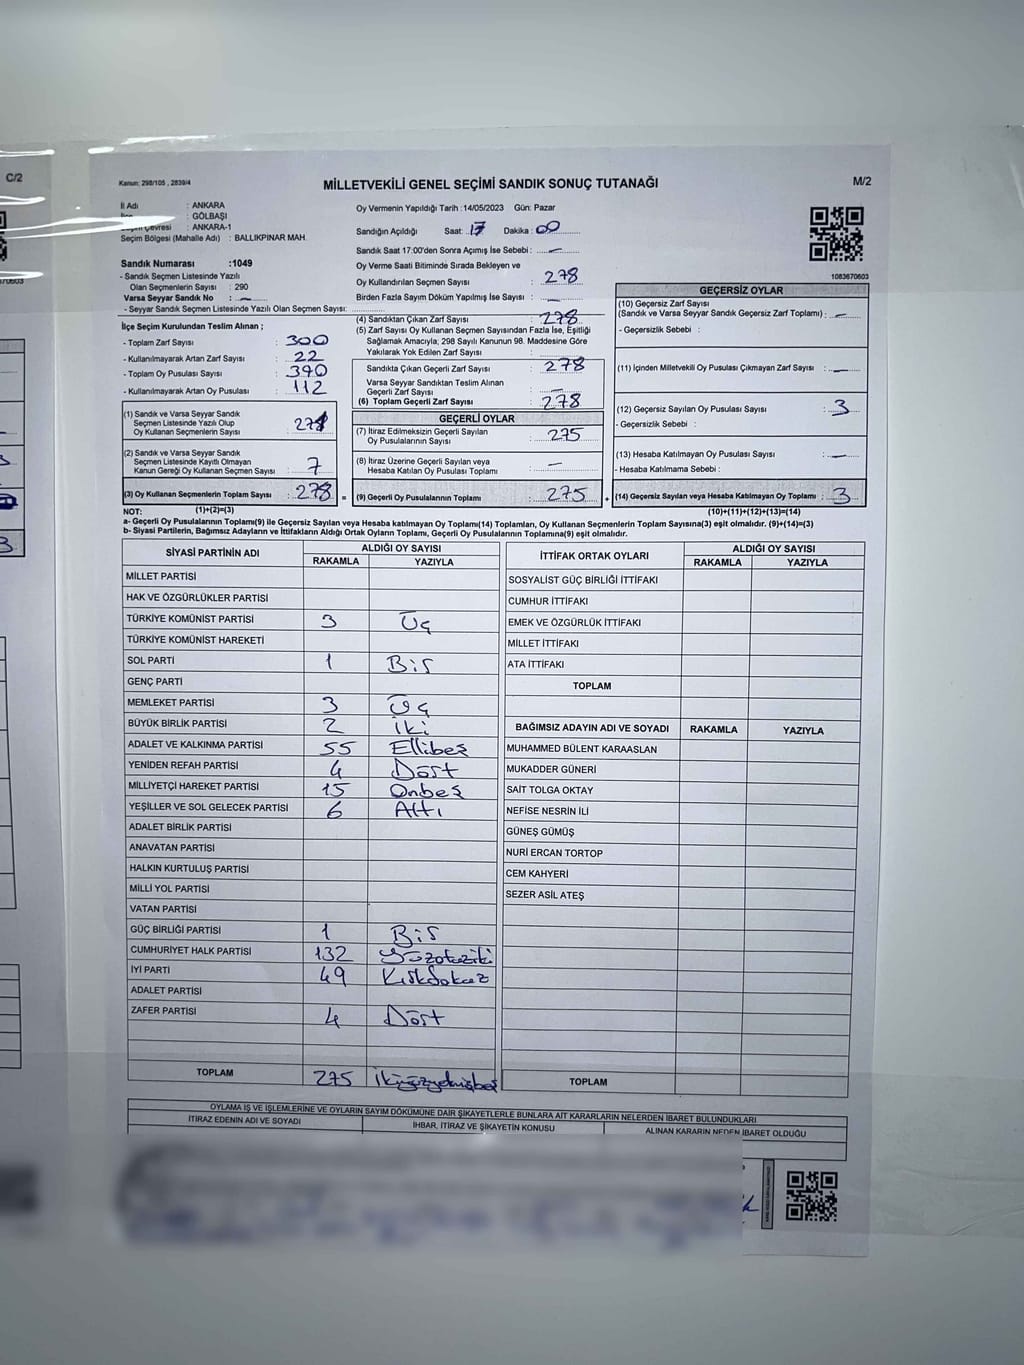 C/2
Kanun: 298/105 , 2839/4
MİLLETVEKİLİ GENEL SEÇİMİ SANDIK SONUÇ TUTANAĞI
M/2
İl Adı : ANKARA
: GÖLBAŞI
Çevresi : ANKARA-1
Seçim Bölgesi (Mahalle Adı) : BALLIKPINAR MAH.
Sandık Numarası :1049
- Sandık Seçmen Listesinde Yazılı
Olan Seçmenlerin Sayısı : 290
Varsa Seyyar Sandık No : —
- Seyyar Sandık Seçmen Listesinde Yazılı Olan Seçmen Sayısı:
İlçe Seçim Kurulundan Teslim Alınan ;
- Toplam Zarf Sayısı : 300
- Kullanılmayarak Artan Zarf Sayısı : 22
- Toplam Oy Pusulası Sayısı : 390
- Kullanılmayarak Artan Oy Pusulası : 112
(1) Sandık ve Varsa Seyyar Sandık
Seçmen Listesinde Yazılı Olup
Oy Kullanan Seçmenlerin Sayısı : 271
(2) Sandık ve Varsa Seyyar Sandık
Seçmen Listesinde Kayıtlı Olmayan
Kanun Gereği Oy Kullanan Seçmen Sayısı : 7
(3) Oy Kullanan Seçmenlerin Toplam Sayısı : 278 =
(1)+(2)=(3)
Oy Vermenin Yapıldığı Tarih :14/05/2023 Gün: Pazar
Sandığın Açıldığı Saat: 17 Dakika : 00
Sandık Saat 17:00'den Sonra Açımış İse Sebebi : —
Oy Verme Saati Bitiminde Sırada Bekleyen ve
Oy Kullandırılan Seçmen Sayısı : 278
Birden Fazla Sayım Döküm Yapılmış İse Sayısı : —
(4) Sandıktan Çıkan Zarf Sayısı : 278
(5) Zarf Sayısı Oy Kullanan Seçmen Sayısından Fazla İse, Eşitliği
Sağlamak Amacıyla, 298 Sayılı Kanunun 98. Maddesine Göre
Yakılarak Yok Edilen Zarf Sayısı :
Sandıkta Çıkan Geçerli Zarf Sayısı : 278
Varsa Seyyar Sandıktan Teslim Alınan
Geçerli Zarf Sayısı : —
(6) Toplam Geçerli Zarf Sayısı : 278
GEÇERLİ OYLAR
(7) İtiraz Edilmeksizin Geçerli Sayılan
Oy Pusulalarının Sayısı : 275
(8) İtiraz Üzerine Geçerli Sayılan veya
Hesaba Katılan Oy Pusulası Toplamı : —
(9) Geçerli Oy Pusulalarının Toplamı : 275 +
1083670603
GEÇERSİZ OYLAR
(10) Geçersiz Zarf Sayısı
(Sandık ve Varsa Seyyar Sandık Geçersiz Zarf Toplamı) : —
- Geçersizlik Sebebi :
(11) İçinden Milletvekili Oy Pusulası Çıkmayan Zarf Sayısı : —
(12) Geçersiz Sayılan Oy Pusulası Sayısı : 3
- Geçersizlik Sebebi :
(13) Hesaba Katılmayan Oy Pusulası Sayısı : —
- Hesaba Katılmama Sebebi :
(14) Geçersiz Sayılan veya Hesaba Katılmayan Oy Toplamı : 3
(10)+(11)+(12)+(13)=(14)
NOT:
a- Geçerli Oy Pusulalarının Toplamı(9) ile Geçersiz Sayılan veya Hesaba katılmayan Oy Toplamı(14) Toplamları, Oy Kullanan Seçmenlerin Toplam Sayısına(3) eşit olmalıdır. (9)+(14)=(3)
b- Siyasi Partilerin, Bağımsız Adayların ve İttifakların Aldığı Ortak Oyların Toplamı, Geçerli Oy Pusulalarının Toplamına(9) eşit olmalıdır.
SİYASİ PARTİNİN ADI ALDIĞI OY SAYISI
RAKAMLA YAZIYLA
MİLLET PARTİSİ
HAK VE ÖZGÜRLÜKLER PARTİSİ
TÜRKİYE KOMÜNİST PARTİSİ 3 Üç
TÜRKİYE KOMÜNİST HAREKETİ
SOL PARTİ 1 Bir
GENÇ PARTİ
MEMLEKET PARTİSİ 3 Üç
BÜYÜK BİRLİK PARTİSİ 2 İki
ADALET VE KALKINMA PARTİSİ 55 Ellibeş
YENİDEN REFAH PARTİSİ 4 Dört
MİLLİYETÇİ HAREKET PARTİSİ 15 Onbeş
YEŞİLLER VE SOL GELECEK PARTİSİ 6 Altı
ADALET BİRLİK PARTİSİ
ANAVATAN PARTİSİ
HALKIN KURTULUŞ PARTİSİ
MİLLİ YOL PARTİSİ
VATAN PARTİSİ
GÜÇ BİRLİĞİ PARTİSİ 1 Bir
CUMHURİYET HALK PARTİSİ 132 Yüzotuziki
İYİ PARTİ 49 Kırkdokuz
ADALET PARTİSİ
ZAFER PARTİSİ 4 Dört
TOPLAM 275 İkiyüzyetmişbeş
İTTİFAK ORTAK OYLARI ALDIĞI OY SAYISI
RAKAMLA YAZIYLA
SOSYALİST GÜÇ BİRLİĞİ İTTİFAKI
CUMHUR İTTİFAKI
EMEK VE ÖZGÜRLÜK İTTİFAKI
MİLLET İTTİFAKI
ATA İTTİFAKI
TOPLAM
BAĞIMSIZ ADAYIN ADI VE SOYADI RAKAMLA YAZIYLA
MUHAMMED BÜLENT KARAASLAN
MUKADDER GÜNERİ
SAİT TOLGA OKTAY
NEFİSE NESRİN İLİ
GÜNEŞ GÜMÜŞ
NURİ ERCAN TORTOP
CEM KAHYERİ
SEZER ASİL ATEŞ
TOPLAM
OYLAMA İŞ VE İŞLEMLERİNE VE OYLARIN SAYIM DÖKÜMÜNE DAİR ŞİKAYETLERLE BUNLARA AİT KARARLARIN NELERDEN İBARET BULUNDUKLARI
İTİRAZ EDENİN ADI VE SOYADI İHBAR, İTİRAZ VE ŞİKAYETİN KONUSU ALINAN KARARIN NEDEN İBARET OLDUĞU